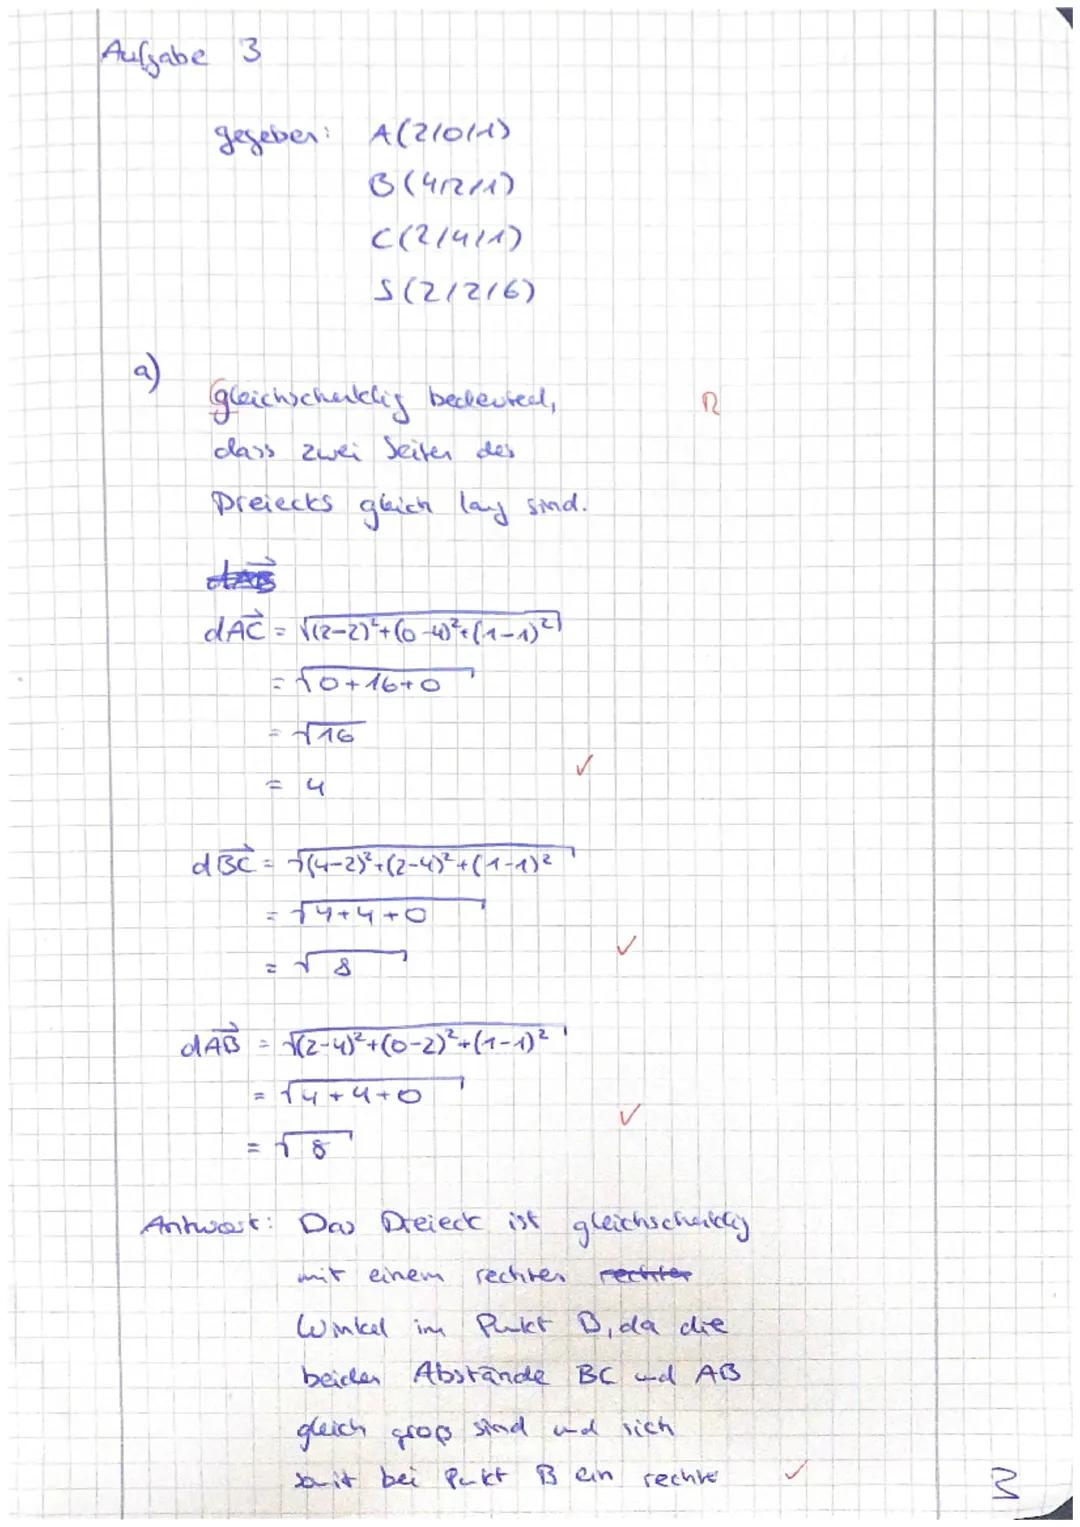 Aufgabe 3
gegeben: A(2|0|1)
B(4|2|1)
C(2|4|1)
S(2|2|6)
a)
gleichschenklig bedeuted, R
dass zwei Seiten des
Dreiecks gleich lang sind.
dAB
dAC = √(2-2)²+(0-4)²+(1-1)²
= √0+16+0
= √16
= 4 ✓
dBC = √(4-2)²+(2-4)²+(1-1)²
= √4+4+0
= √8 ✓
dAB = √(2-4)²+(0-2)²+(1-1)²
= √4+4+0
= √8 ✓
Antwort: Das Dreieck ist gleichschenklig
mit einem rechten rechten
Winkel im Punkt B, da die
beiden Abstände BC und AB
gleich groß sind und sich
somit bei Punkt B ein rechter ✓ 3